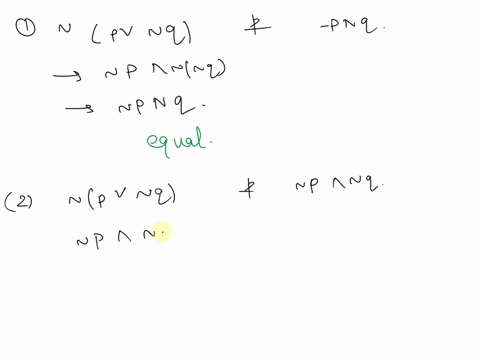 ① ~ (p ∨ ~q) ≢ ~p ∧ q.
→ ~p ∧ ~(~q)
→ ~p ∧ q.
equal.
(2) ~(p ∨ ~q) ≢ ~p ∧ ~q.
~p ∧ ~.